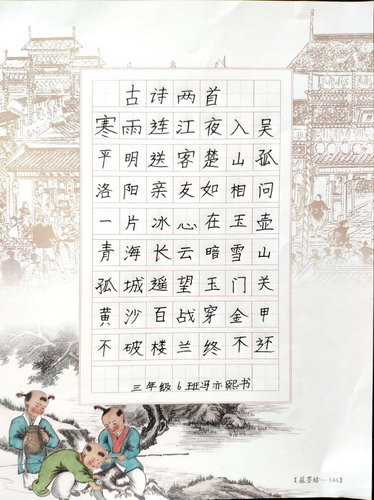 古诗两首
寒雨连江夜入吴
平明送客楚山孤
洛阳亲友如相问
一片冰心在玉壶
青海长云暗雪山
孤城遥望玉门关
黄沙百战穿金甲
不破楼兰终不还
三年级6班冯亦熙书